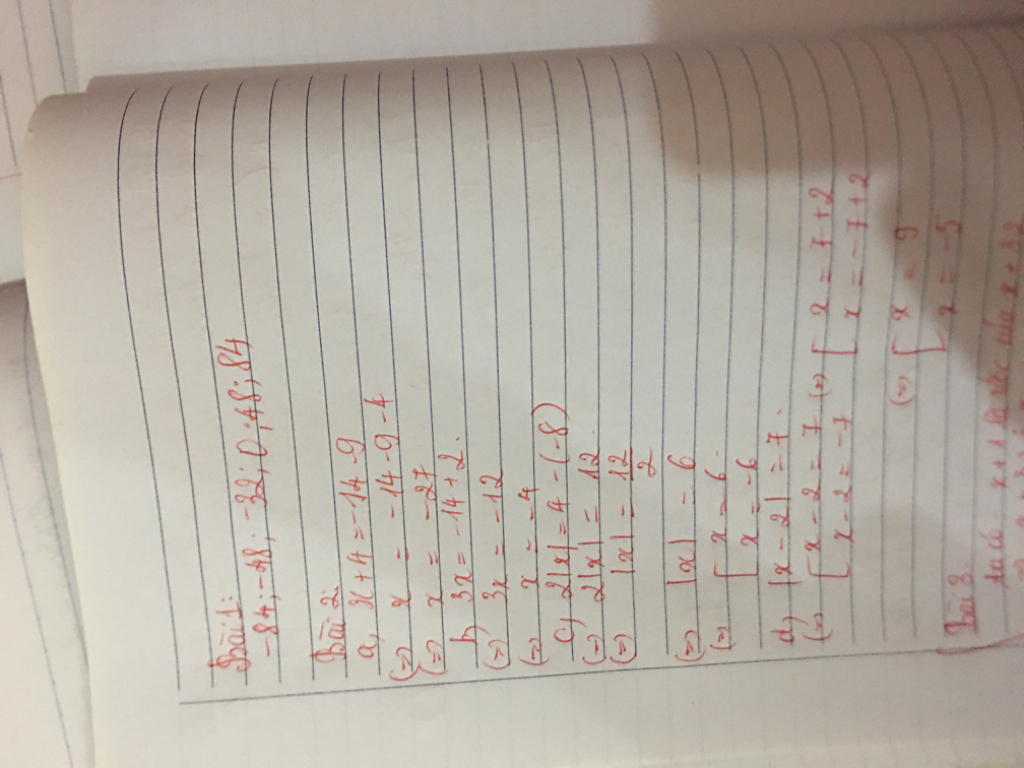 Bài 1:
-84; -48; -32; 0; 48; 84
Bài 2:
a, x + 4 = -14 - 9
(=) x = -14 - 9 - 4
(=) x = -27
b, 3x = -14 + 2.
(=) 3x = -12
(=) x = -4
c, 2|x| = 4 - (-8)
(=) 2|x| = 12.
(=) |x| = 12/2
(=) |x| = 6
(=) [ x = 6.
[ x = -6
d, |x - 2| = 7.
(=) [ x - 2 = 7 (=) [ x = 7 + 2
[ x - 2 = -7 [ x = -7 + 2
(=) [ x = 9
[ x = -5
Bài 3.
ta có x + 1 là ước của x + 32